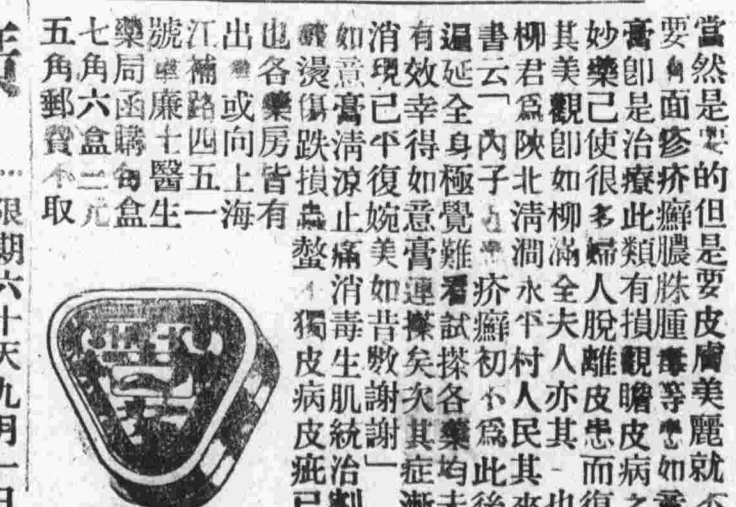 當然是要的但是要皮膚美麗就不
要面疹疥癬膿腄腫毒等患如意
膏卽是治療此類有損觀瞻皮病之
妙藥己使很多婦人脫離皮患而復
其美觀卽如柳滿全夫人亦其一也
柳君爲陝北淸澗永平村人民其來
書云「內子疥癬初不爲此後
遍延全身極覺難看試搽各藥均未
有效幸得如意膏連搽矣次其症漸
消現已平復婉美如昔敭謝謝」
如意膏淸涼止痛消毒生肌統治割
燙傷跌損蟲螫獨皮病皮疵已
也各藥房皆有
出或向上海
江補路四五一
號韋廉士醫生
藥局函購每盒
七角六盒三元
五角郵費不取
限期六十天九月一日